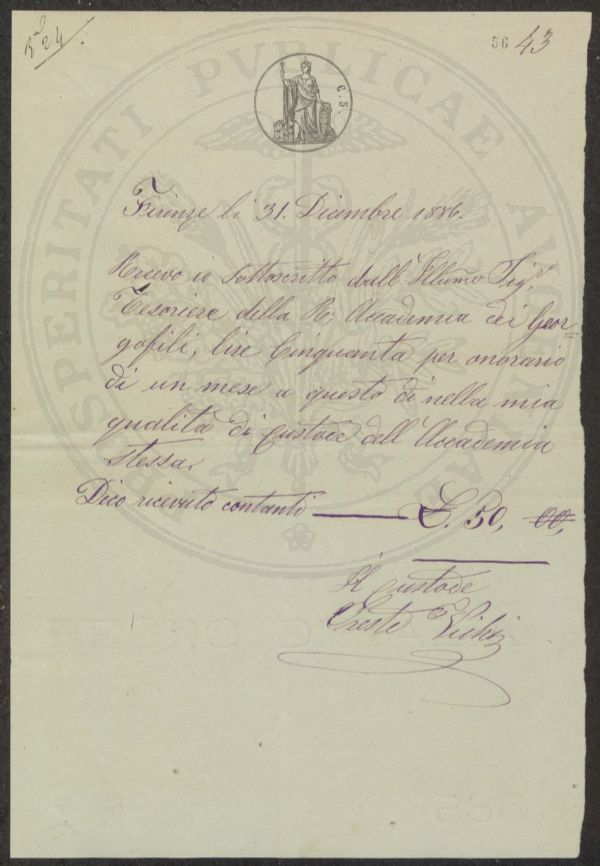 24
56 43
C. 5.
Firenze li 31. Dicembre 1886.
Ricevo io sottoscritto dall' Illumo Sigr
Tesoriere della Re; Accademia dei Geor=
gofili, lire Cinquanta per onorario
di un mese a questo dì nella mia
qualità di custode dell' Accademia
stessa.
Dico ricevuto contanti — £. 50, 00,
Il custode
Oreste
PROSPERITATI PUBLICAE AUGENDAE